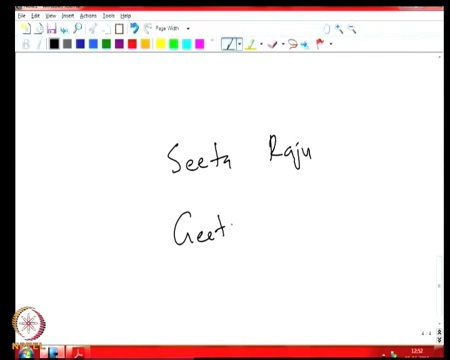 File Edit View Insert Actions Tools Help
Page Width
Seeta Raju
Geet
NPTEL
12:52